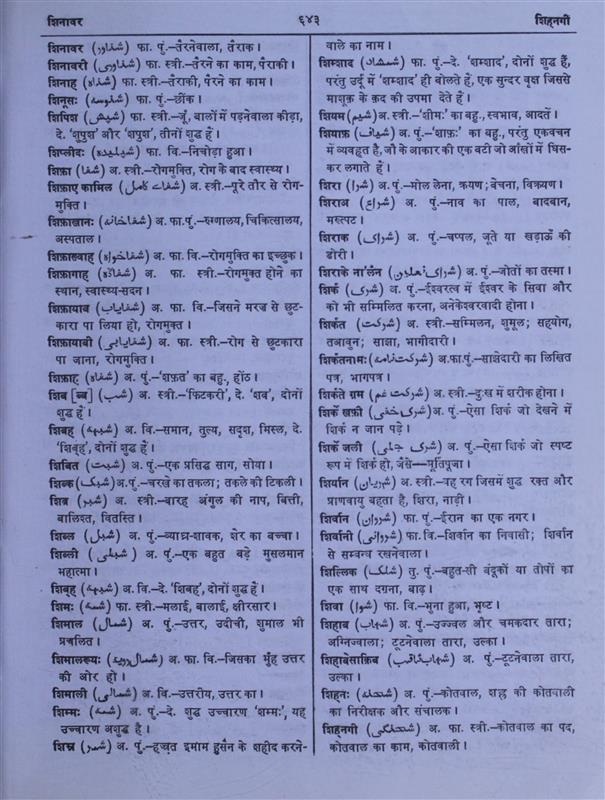 शिनावर
६४३
शिह्नगी
शिनावर (شناور) फा. पुं.–तैरनेवाला, तैराक।
शिनावरी (شناوری) फा. स्त्री.–तैरने का काम, पैराकी।
शिनाह (شناه) फा. स्त्री.–तैराकी, पैरने का काम।
शिनूसः (شنوسه) फा. पुं.–छींक।
शिपिश (شپش) फा. स्त्री.–जूँ, बालों में पड़नेवाला कीड़ा,
दे. 'शुपुश' और 'शपुश', तीनों शुद्ध हैं।
शिप्लीदः (شپلیده) फा. वि.–निचोड़ा हुआ।
शिफ़ा (شفا) अ. स्त्री.–रोगमुक्ति, रोग के बाद स्वास्थ्य।
शिफ़ाए कामिल (شفاے کامل) अ. स्त्री.–पूरे तौर से रोग-
मुक्ति।
शिफ़ाखानः (شفاخانه) अ. फा.पुं.–रुग्णालय, चिकित्सालय,
अस्पताल।
शिफ़ाख्वाह (شفاخواه) अ. फा. वि.–रोगमुक्ति का इच्छुक।
शिफ़ागाह (شفاگاه) अ. फा. स्त्री.–रोगमुक्त होने का
स्थान, स्वास्थ्य-सदन।
शिफ़ायाब (شفایاب) अ. फा. वि.–जिसने मरज़ से छुट-
कारा पा लिया हो, रोगमुक्त।
शिफ़ायाबी (شفایابی) अ. फा. स्त्री.–रोग से छुटकारा
पा जाना, रोगमुक्ति।
शिफ़ाह (شفاه) अ. पुं.–'शफ़त' का बहु., होंठ।
शिब [ब्ब] (شب) अ. स्त्री.–'फिटकरी', दे. 'शब', दोनों
शुद्ध हैं।
शिबह (شبهه) अ. वि.–समान, तुल्य, सदृश, मिस्ल, दे.
'शिब्ह', दोनों शुद्ध हैं।
शिबित (شبت) अ. पुं.–एक प्रसिद्ध साग, सोया।
शिब्क (شبک) अ.पुं.–चरखे का तकला; तकले की टिकली।
शिब्र (شبر) अ. स्त्री.–बारह अंगुल की नाप, बित्ती,
बालिश्त, वितस्ति।
शिब्ल (شبل) अ. पुं.–व्याघ्र-शावक, शेर का बच्चा।
शिब्ली (شبلی) अ. पुं.–एक बहुत बड़े मुसलमान
महात्मा।
शिब्ह (شبهه) अ. वि.–दे. 'शिबह', दोनों शुद्ध हैं।
शिमः (شمه) फा. स्त्री.–मलाई, बालाई, क्षीरसार।
शिमाल (شمال) अ. पुं.–उत्तर, उदीची, शुमाल भी
प्रचलित।
शिमालरूयः (شمال رویه) अ. फा. वि.–जिसका मुँह उत्तर
की ओर हो।
शिमाली (شمالی) अ. वि.–उत्तरीय, उत्तर का।
शिम्मः (شمه) अ. पुं.–दे. शुद्ध उच्चारण 'शम्मः', यह
उच्चारण अशुद्ध है।
शिम्र (شمر) अ. पुं.–हज्रत इमाम हुसैन के शहीद करने-
वाले का नाम।
शिम्शाद (شمشاد) फा. पुं.–दे. 'शम्शाद', दोनों शुद्ध हैं,
परंतु उर्दू में 'शम्शाद' ही बोलते हैं, एक सुन्दर वृक्ष जिससे
माशूक़ के क़द की उपमा देते हैं।
शियम (شیم) अ. स्त्री.–'शीमः' का बहु., स्वभाव, आदतें।
शियाफ़ (شیاف) अ. पुं.–'शाफ़ः' का बहु., परंतु एकवचन
में व्यवहृत है, जौ के आकार की एक बटी जो आँखों में घिस-
कर लगाते हैं।
शिरा (شرا) अ. पुं.–मोल लेना, क्रयण; बेचना, विक्रयण।
शिराअ (شراع) अ. पुं.–नाव का पाल, बादबान,
मरुत्पट।
शिराक (شراک) अ. पुं.–चप्पल, जूते या खड़ाऊँ की
डोरी।
शिराके ना'लैन (شراک نعلین) अ. पुं.–जोतों का तस्मा।
शिर्क (شرک) अ. पुं.–ईश्वरत्व में ईश्वर के सिवा और
को भी सम्मिलित करना, अनेकेश्वरवादी होना।
शिर्कत (شرکت) अ. स्त्री.–सम्मिलन, शुमूल; सहयोग,
तआवुन; साझा, भागीदारी।
शिर्कतनामः (شرکت نامه) अ.फा.पुं.–साझेदारी का लिखित
पत्र, भागपत्र।
शिर्कते ग़म (شرکت غم) अ. स्त्री.–दुःख में शरीक होना।
शिर्के ख़फ़ी (شرک خفی) अ. पुं.–ऐसा शिर्क जो देखने में
शिर्क न जान पड़े।
शिर्के जली (شرک جلی) अ. पुं.–ऐसा शिर्क जो स्पष्ट
रूप में शिर्क हो, जैसे–मूर्तिपूजा।
शिर्यान (شریان) अ. स्त्री.–वह रग जिसमें शुद्ध रक्त और
प्राणवायु बहता है, शिरा, नाड़ी।
शिर्वान (شروان) फा. पुं.–ईरान का एक नगर।
शिर्वानी (شروانی) फा. वि.–शिर्वान का निवासी; शिर्वान
से सम्बन्ध रखनेवाला।
शिल्लिक (شلک) तु. पुं.–बहुत-सी बंदूकों या तोपों का
एक साथ दगना, बाढ़।
शिवा (شوا) फा. वि.–भुना हुआ, भृष्ट।
शिहाब (شهاب) अ. पुं.–उज्ज्वल और चमकदार तारा;
अग्निज्वाला; टूटनेवाला तारा, उल्का।
शिहाबेसाक़िब (شهاب ثاقب) अ. पुं.–टूटनेवाला तारा,
उल्का।
शिह्नः (شحنه) अ. पुं.–कोतवाल, शह्र की कोतवाली
का निरीक्षक और संचालक।
शिह्नगी (شحنگی) अ. फा. स्त्री.–कोतवाल का पद,
कोतवाल का काम, कोतवाली।